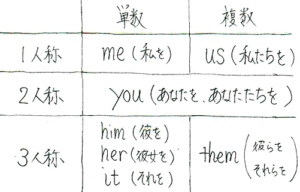 単数 複数
1人称 me (私を) us (私たちを)
2人称 you (あなたを、あなたたちを)
him (彼を)
3人称 her (彼女を) them (彼らを それらを)
it (それを)